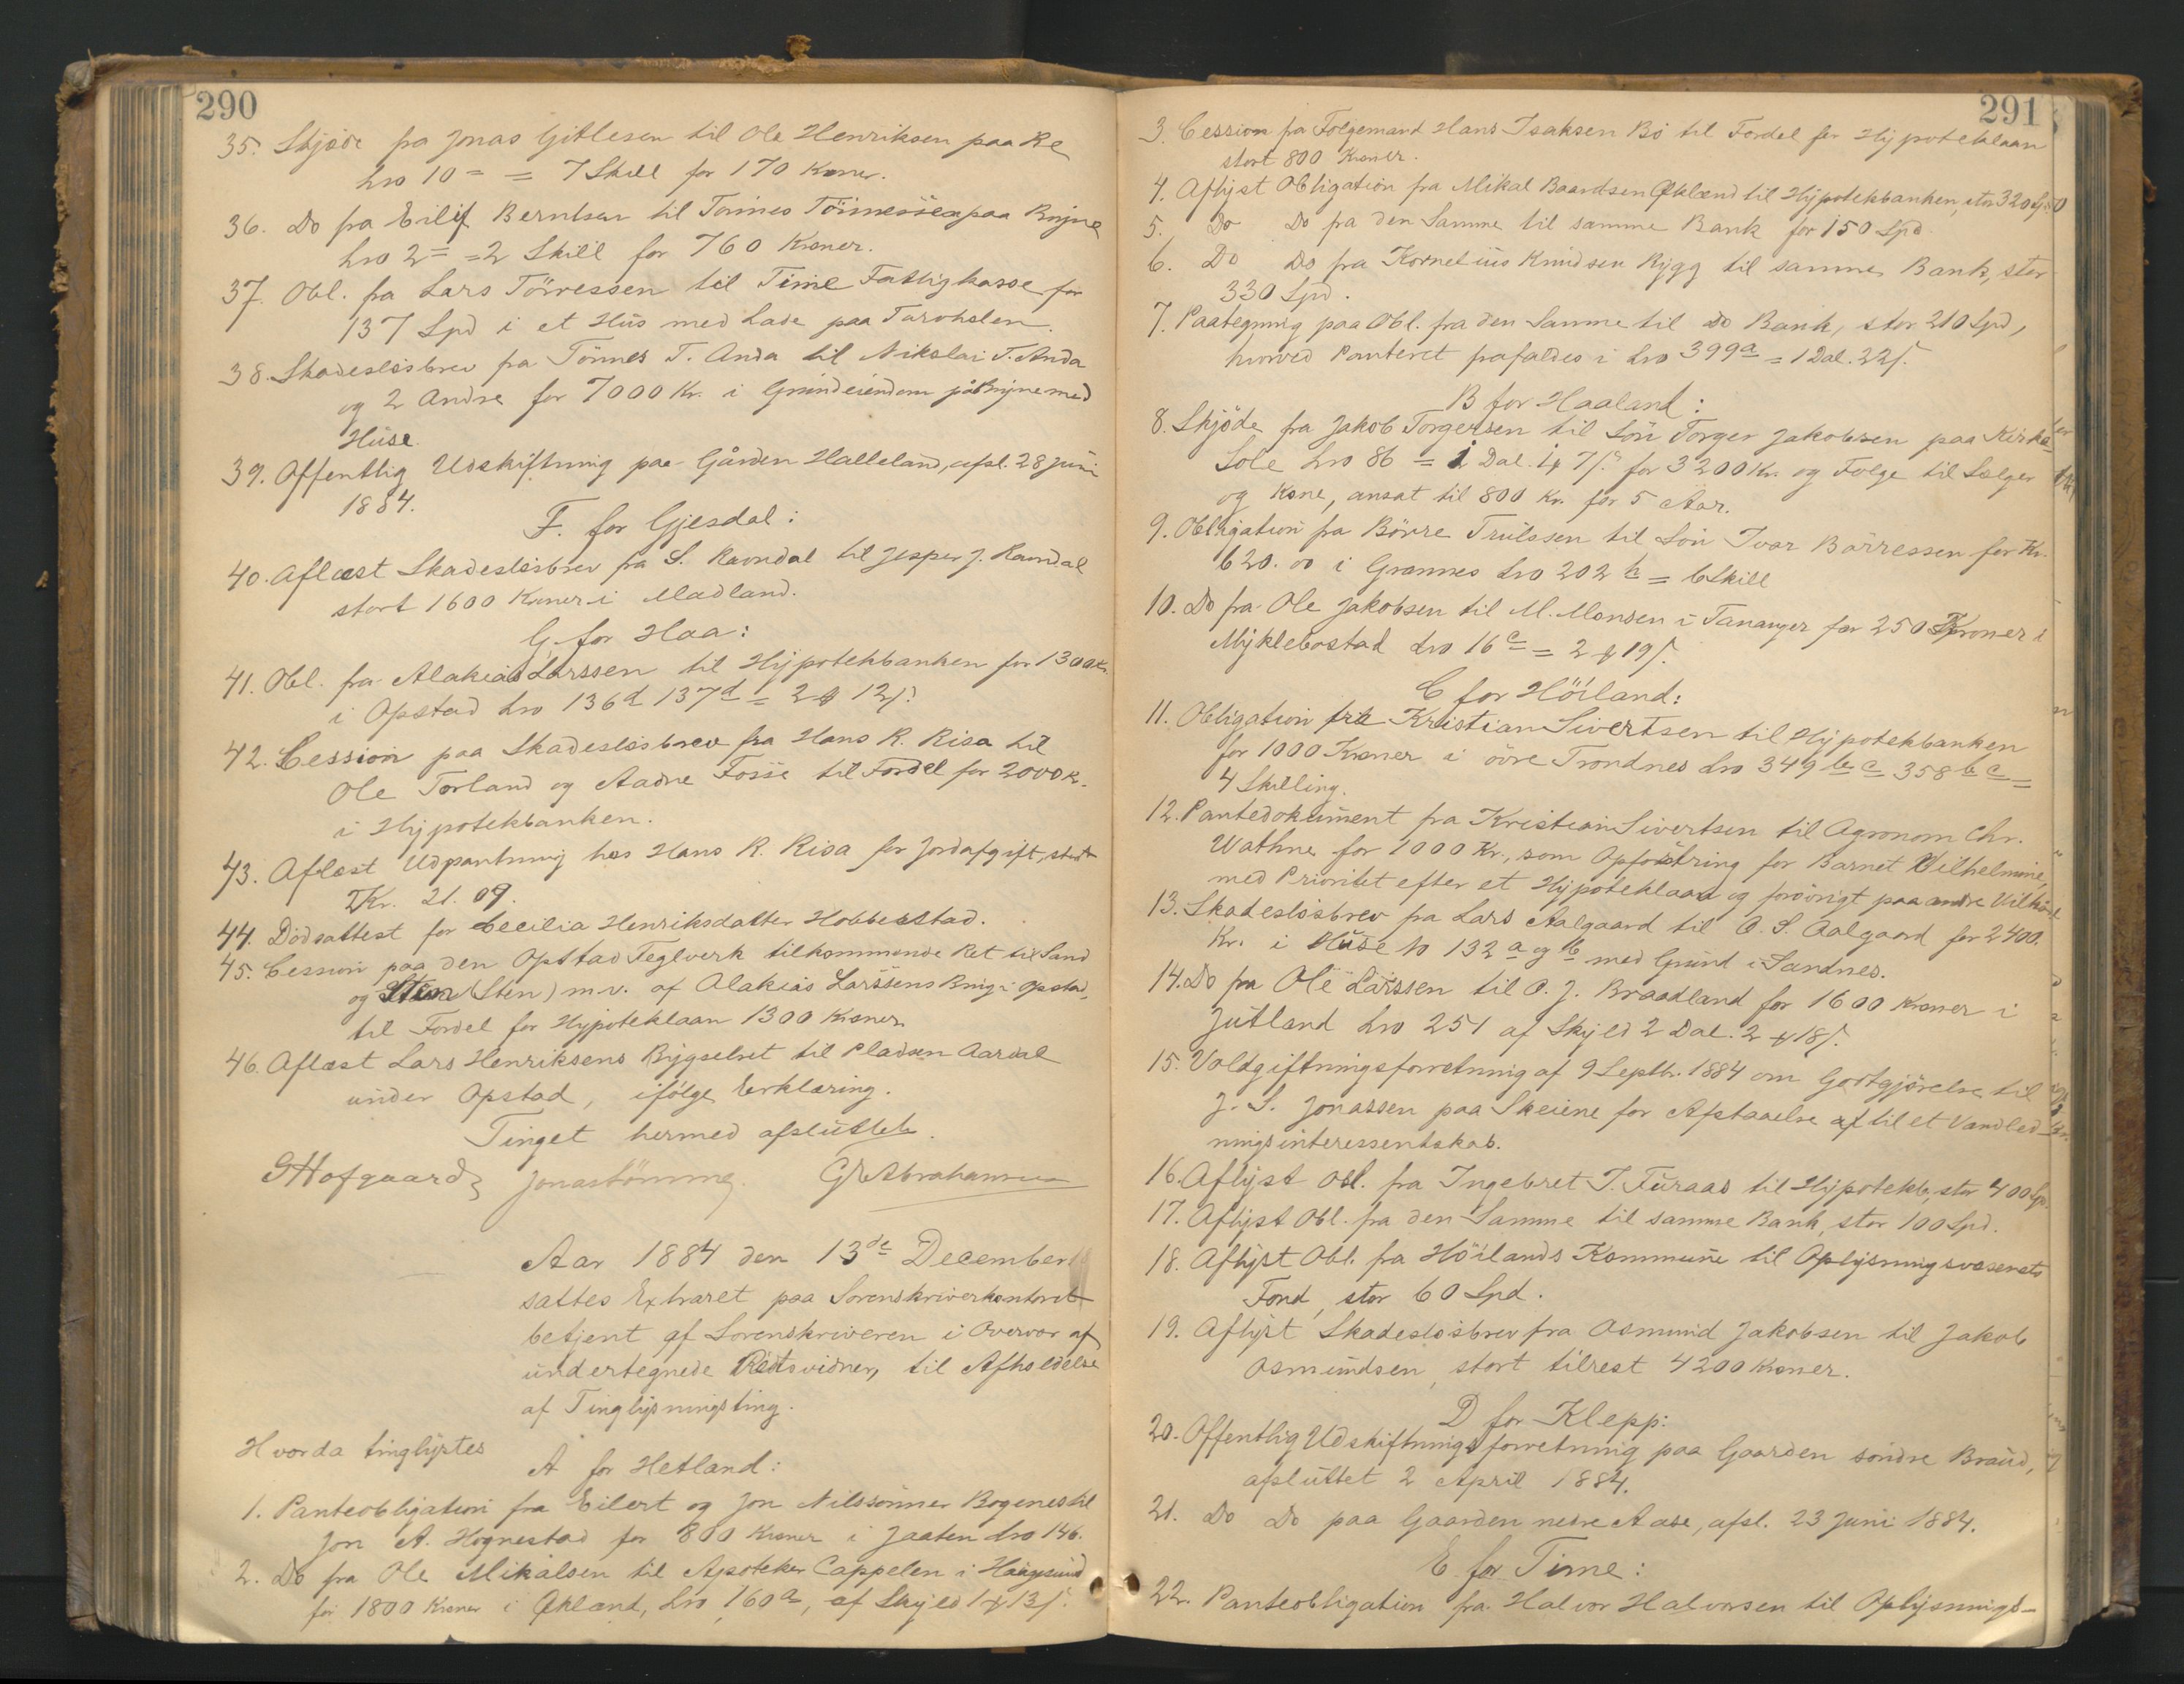 290
35. Skjøde fra Jonas Gitlesen til Ole Henriksen paa Re
Lno 10 = 7 Skill for 170 Kroner.
36. Do fra Eilif Berntsen til Tönnes Tönnessen paa Bryne
Lno 2 = 2 Skill for 760 Kroner.
37. Obl. fra Lars Törressen til Time Fattigkasse for
137 Spd i et Hus med Lade paa
38. Skadeslösbrev fra Tönnes T. Anda til Nikolai T. Anda
og 2 Andre for 7000 Kr. i Grundeiendom på Bryne med
Huse.
39. Offentlig Udskiftning paa Gården Halleland, afsl. 28 Juni
1884.
F. for Gjesdal:
40. Aflæst Skadeslösbrev fra S. Ravndal til Jesper J. Ravndal
stort 1600 Kroner i Madland.
G. for Haa:
41. Obl. fra Alakias Larssen til Hypotekbanken for 1300 Kr.
i Opstad Lno 136d 137d = 2 12 s.
42. Cession paa Skadeslösbrev fra Hans R. Risa til
Ole Torland og Aadne Fosse til Fordel for 2000 K.
i Hypotekbanken.
43. Aflæst Udpantning hos Hans R. Risa for Jordafgift, stort
Kr. 21.09.
44. Dödsattest for Cecilia Henriksdatter Hobbesstad.
45. Cession paa den Opstad Teglverk tilkommende Ret til Sand
og (Sten) m.v. af Alakias Larssens Brug i Opstad,
til Fordel for Hypoteklaan 1300 Kroner.
46. Aflæst Lars Henriksens Bygselret til Pladsen Aardal
under Opstad, ifölge Erklæring.
Tinget hermed afsluttet.
GHofgaard Jonas Tömme. Abrahamsen
Aar 1884 den 13de December
sattes Extraret paa Sorenskriverkontoret
betjent af Sorenskriveren i Overvær af
undertegnede Retsvidner, til Afholdelse
af Tinglysningsting.
Hvorda tinglystes
A for Hetland:
1. Panteobligation fra Eilert og Jon Nilssönner Bogenes til
Jon A. Hognestad for 800 Kroner i Jaaten Lno 146.
2. Do fra Ole Mikalsen til Apoteker Cappelen i Haugesund
for 1800 Kroner i Økland, Lno 160a, af Skyld 1 13 s.
291
3. Cession fra Folgemand Hans Isaksen Bö til Fordel for Hypoteklaan
stort 800 Kroner.
4. Aflyst Obligation fra Mikal Baardsen Økland til Hypotekbanken, stor 320 Spd
5. Do Do fra den Samme til samme Bank for 150 Spd
6. Do Do fra Kornelius Knudsen Rygg til samme Bank, stor
330 Spd.
7. Paategning paa Obl. fra den Samme til Do Bank, stor 210 Spd,
hvorved Panteret frafaldes i Lno 399a = 1 Dal. 22 s.
B for Haaland:
8. Skjöde fra Jakob Torgersen til Sön Torger Jakobsen paa Kirke
Sole Lno 86 = 1 Dal. 7 s. for 3200 Kr. og Folge til Sælger
og Kone, ansat til 800 Kr. for 5 Aar.
9. Obligation fra Börre Trulssen til Sön Ivar Börressen for Kr.
620.00 i Grannes Lno 202 b = 6 Skill
10. Do fra Ole Jakobsen til M. Monsen i Tananger for 250 Kroner i
Myklebostad Lno 16c = 2 19 s.
C for Höiland:
11. Obligation fra Kristian Sivertsen til Hypotekbanken
for 1000 Kroner i övre Trondnes Lno 349 b c 358 b c =
4 Skilling.
12. Pantedokument fra Kristian Sivertsen til Agronom Chr.
Wathne for 1000 Kr., som Opfostring for Barnet Vilhelmine,
med Prioritet efter et Hypoteklaan og forövrigt paa andre Vilkår
13. Skadeslösbrev fra Lars Aalgaard til O. S. Aalgaard for 2400.
Kr. i Huse No 132 a og b med Grund i Sandnes.
14. Do fra Ole Larssen til O. J. Braadland for 1600 Kroner i
Jutland Lno 251 af Skyld 2 Dal. 2 18 s.
15. Voldgiftningsforretning af 9 Septbr. 1884 om Godtgjörelse til
J. S. Jonassen paa Skeiene for Afstaaelse af til et Vandled-
ningsinteressentskab.
16. Aflyst Obl. fra Ingebret T. Furaas til Hypotekb, stor 400 Spd.
17. Aflyst Obl. fra den Samme til samme Bank, stor 100 Spd.
18. Aflyst Obl. fra Höilands Kommune til Oplysningsvæsenets
Fond, stor 60 Spd.
19. Aflyst Skadeslösbrev fra Osmund Jakobsen til Jakob
Osmundsen, stort tilrest 4200 Kroner.
D for Klepp:
20. Offentlig Udskiftningsforretning paa Gaarden söndre Braud,
afsluttet 2 April 1884.
21. Do Do paa Gaarden nedre Aase, afsl. 23 Juni 1884.
E for Time:
22. Panteobligation fra Halvor Halvorsen til Oplysnings-